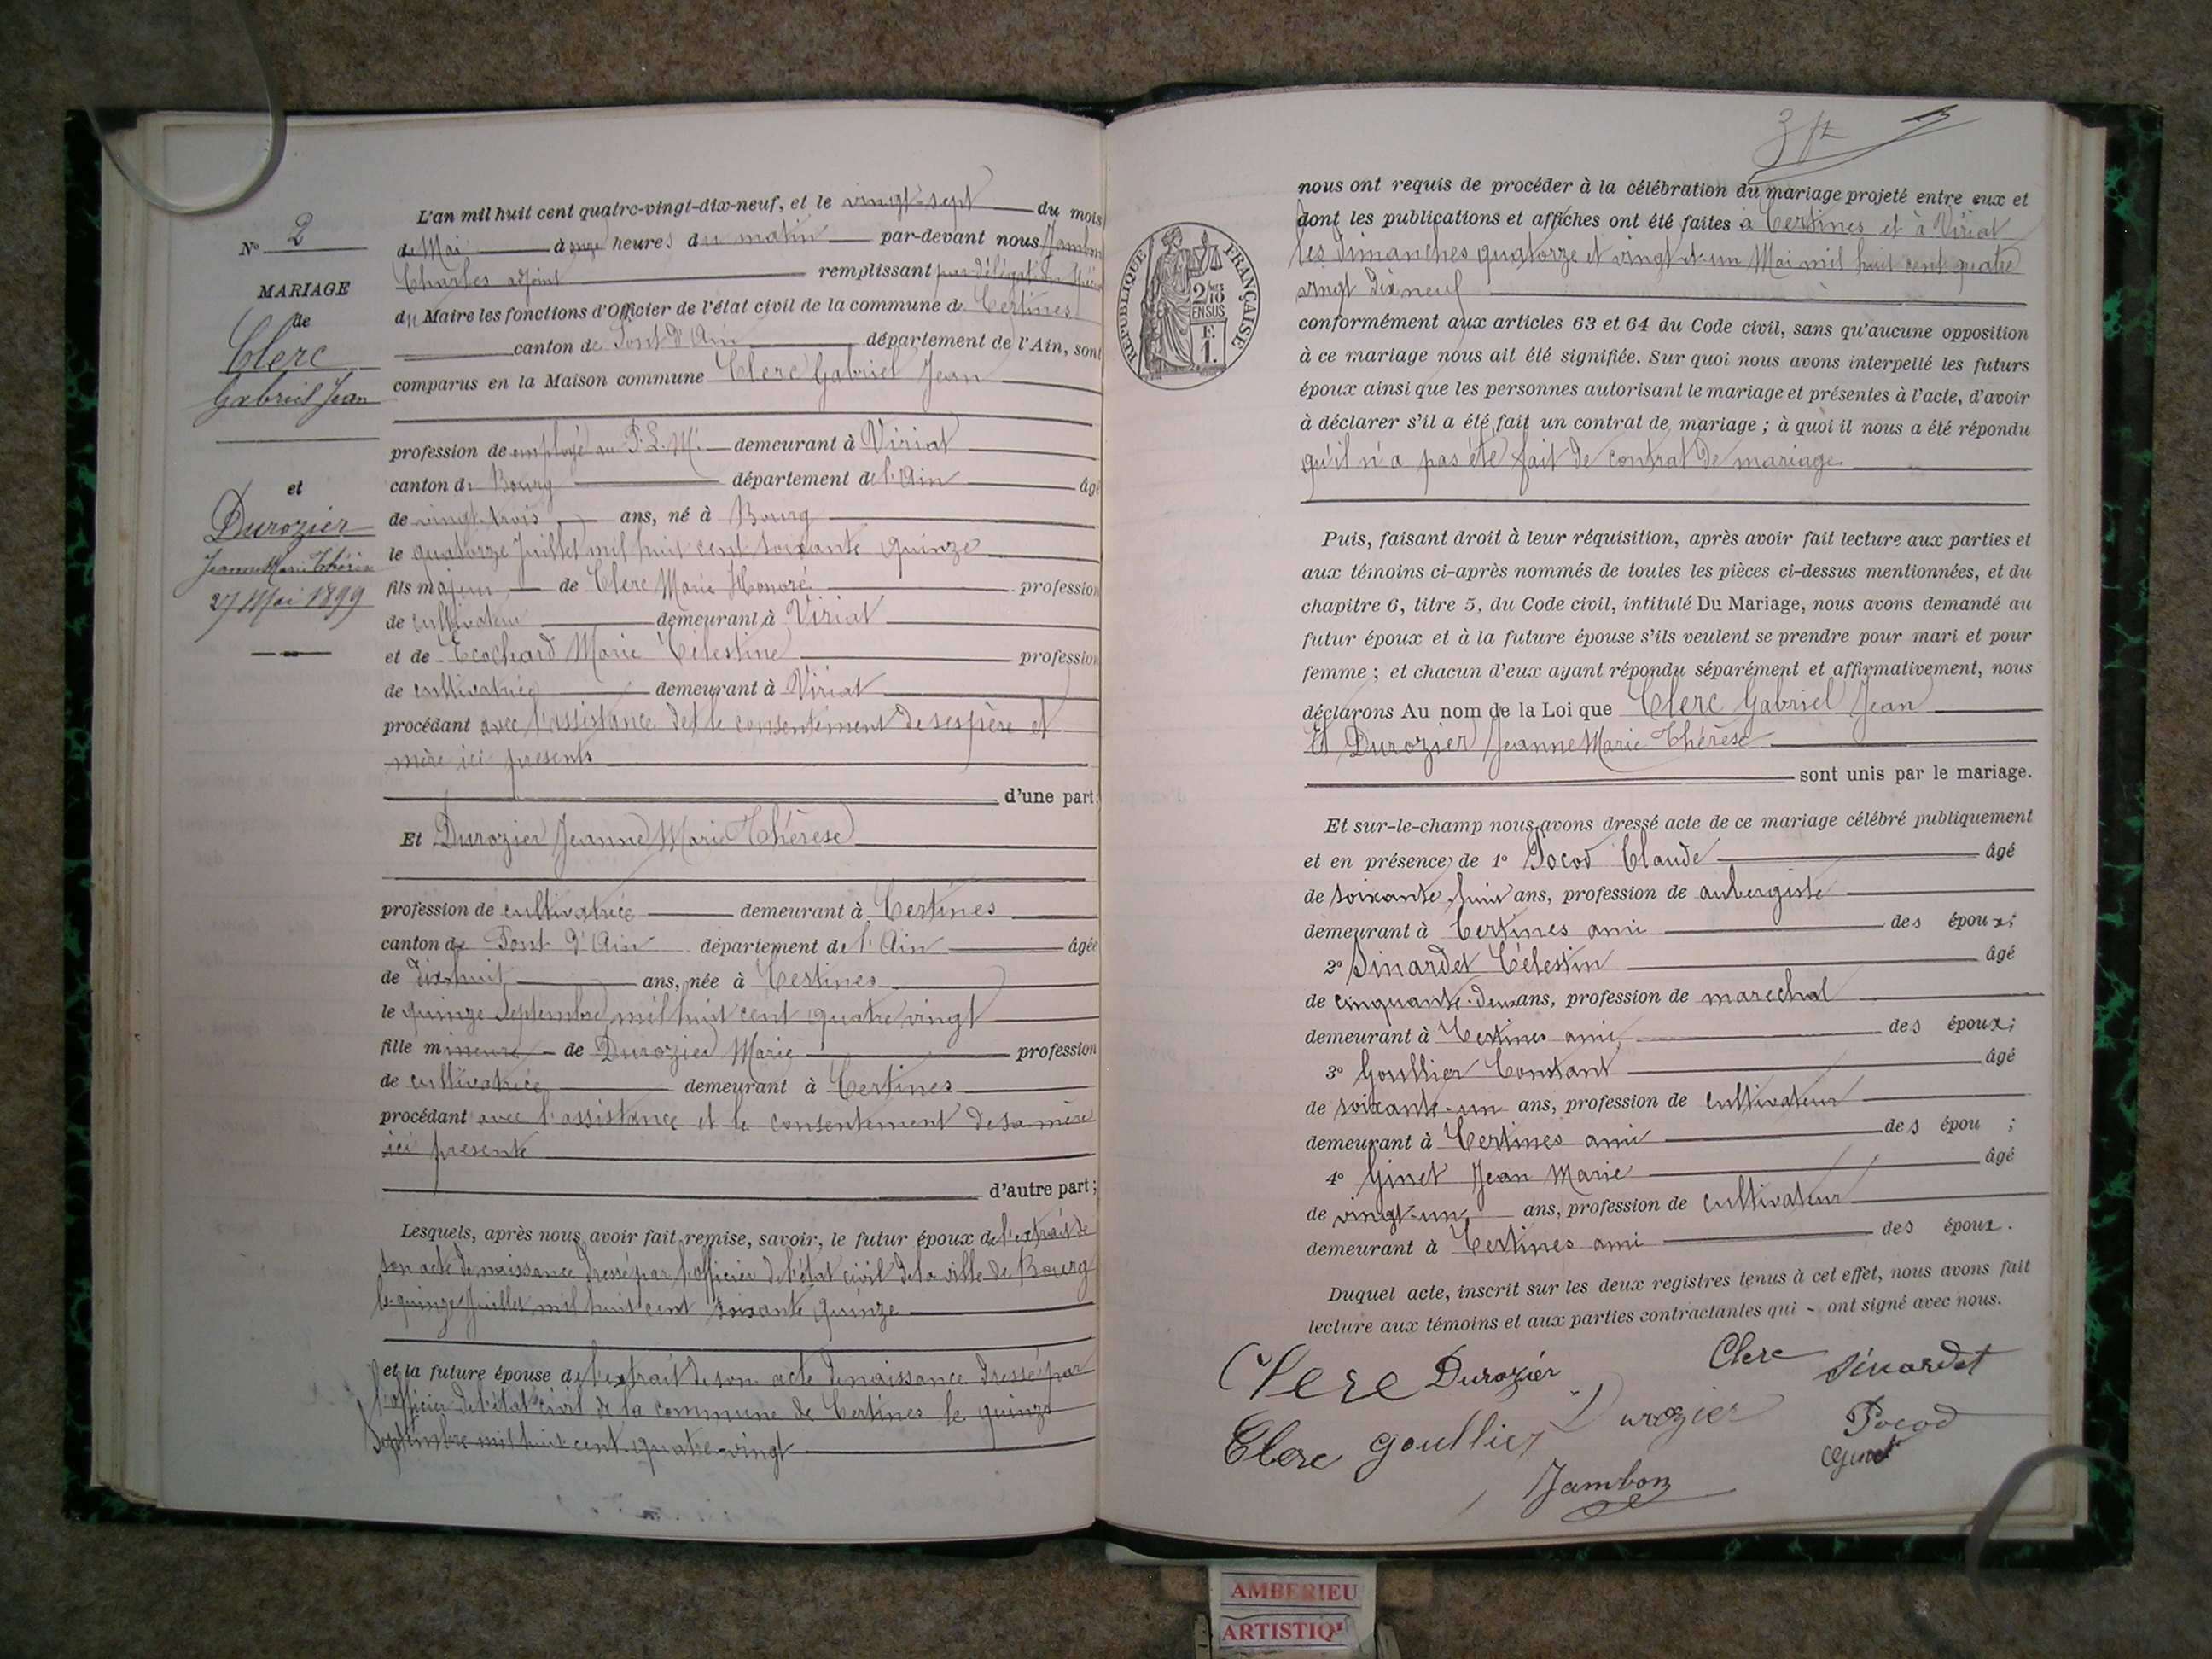 L'an mil huit cent quatre-vingt-dix-neuf, et le vingt-sept du mois
de Mai à onze heures du matin par-devant nous Jambon
Charles adjoint remplissant par délégation
du Maire les fonctions d'Officier de l'état civil de la commune de Certines
canton de Pont d'Ain département de l'Ain, sont
comparus en la Maison commune Clerc Gabriel Jean
profession de employé au P.L.M. demeurant à Viriat
canton de Bourg département de l'Ain âgé
de vingt-trois ans, né à Bourg
le quatorze Juillet mil huit cent soixante quinze
fils majeur de Clerc Marie Honoré profession
de cultivateur demeurant à Viriat
et de Ecochard Marie Célestine profession
de cultivatrice demeurant à Viriat
procédant avec l'assistance de et le consentement de ses père et
mère ici présents
d'une part;
Et Durozier Jeanne Marie Thérèse
profession de cultivatrice demeurant à Certines
canton de Pont d'Ain département de l'Ain âgée
de dix-huit ans, née à Certines
le quinze Septembre mil huit cent quatre vingt
fille mineure de Durozier Marie profession
de cultivatrice demeurant à Certines
procédant avec l'assistance et le consentement de sa mère
ici présente
d'autre part;
Lesquels, après nous avoir fait remise, savoir, le futur époux de l'extrait de
son acte de naissance dressé par l'officier de l'état civil de la ville de Bourg
le quinze Juillet mil huit cent soixante quinze
et la future épouse de l'extrait de son acte de naissance dressé par
l'officier de l'état civil de la commune de Certines le quinze
Septembre mil huit cent quatre-vingt
N° 2
MARIAGE
de
Clerc
Gabriel Jean
et
Durozier
Jeanne Marie Thérèse
27 Mai 1899
nous ont requis de procéder à la célébration du mariage projeté entre eux et
dont les publications et affiches ont été faites à Certines et à Viriat
les dimanches quatorze et vingt et un Mai mil huit cent quatre
vingt dix neuf
conformément aux articles 63 et 64 du Code civil, sans qu'aucune opposition
à ce mariage nous ait été signifiée. Sur quoi nous avons interpellé les futurs
époux ainsi que les personnes autorisant le mariage et présentes à l'acte, d'avoir
à déclarer s'il a été fait un contrat de mariage; à quoi il nous a été répondu
qu'il n'a pas été fait de contrat de mariage
RÉPUBLIQUE FRANÇAISE
2/10
EN SUS
F.
1.
Puis, faisant droit à leur réquisition, après avoir fait lecture aux parties et
aux témoins ci-après nommés de toutes les pièces ci-dessus mentionnées, et du
chapitre 6, titre 5, du Code civil, intitulé Du Mariage, nous avons demandé au
futur époux et à la future épouse s'ils veulent se prendre pour mari et pour
femme; et chacun d'eux ayant répondu séparément et affirmativement, nous
déclarons Au nom de la Loi que Clerc Gabriel Jean
Et Durozier Jeanne Marie Thérèse
sont unis par le mariage.
Et sur-le-champ nous avons dressé acte de ce mariage célébré publiquement
et en présence de 1° Pocod Claude âgé
de soixante-huit ans, profession de aubergiste
demeurant à Certines ami des époux;
2° Sinardet Célestin âgé
de cinquante-deux ans, profession de marechal
demeurant à Certines ami des époux;
3° Goullier Constant âgé
de soixante-un ans, profession de cultivateur
demeurant à Certines ami des épou ;
4° Ginet Jean Marie âgé
de vingt-un ans, profession de cultivateur
demeurant à Certines ami des époux.
Duquel acte, inscrit sur les deux registres tenus à cet effet, nous avons fait
lecture aux témoins et aux parties contractantes qui ont signé avec nous.
Clerc Durozier Clerc Sinardet
Clerc Goullier Durozier Pocod
Ginet
Jambon
AMBERIEU
ARTISTIQ